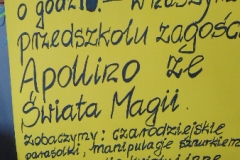 o godz
w naszym
przedszkolu zagości
Apollino ze
Świata Magii.
zobaczymy: czarodziejskie
parasolki, manipulacje sznurkiem